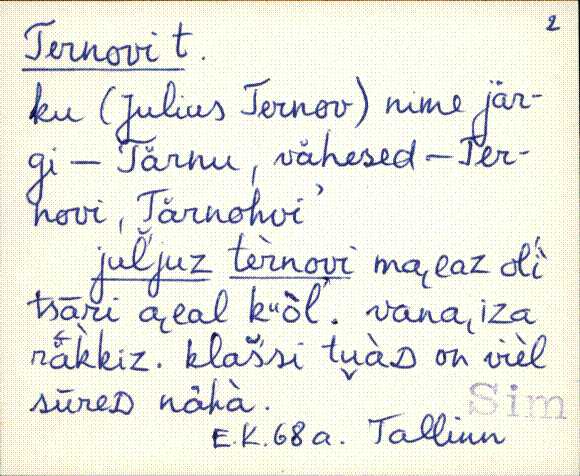 2
Ternovi t.
ku (Julius Ternov) nime jär-
gi – Tärnu, vähesed – Ter-
novi, Tärnohvi
jul̆juz tèrnovi ma,eaz olì
tsāri a,eal kuòl. vana,iza
räkkiz. klas̆si tuàD on vièl
sūreD nähà.
Sim
E.K. 68 a. Tallinn